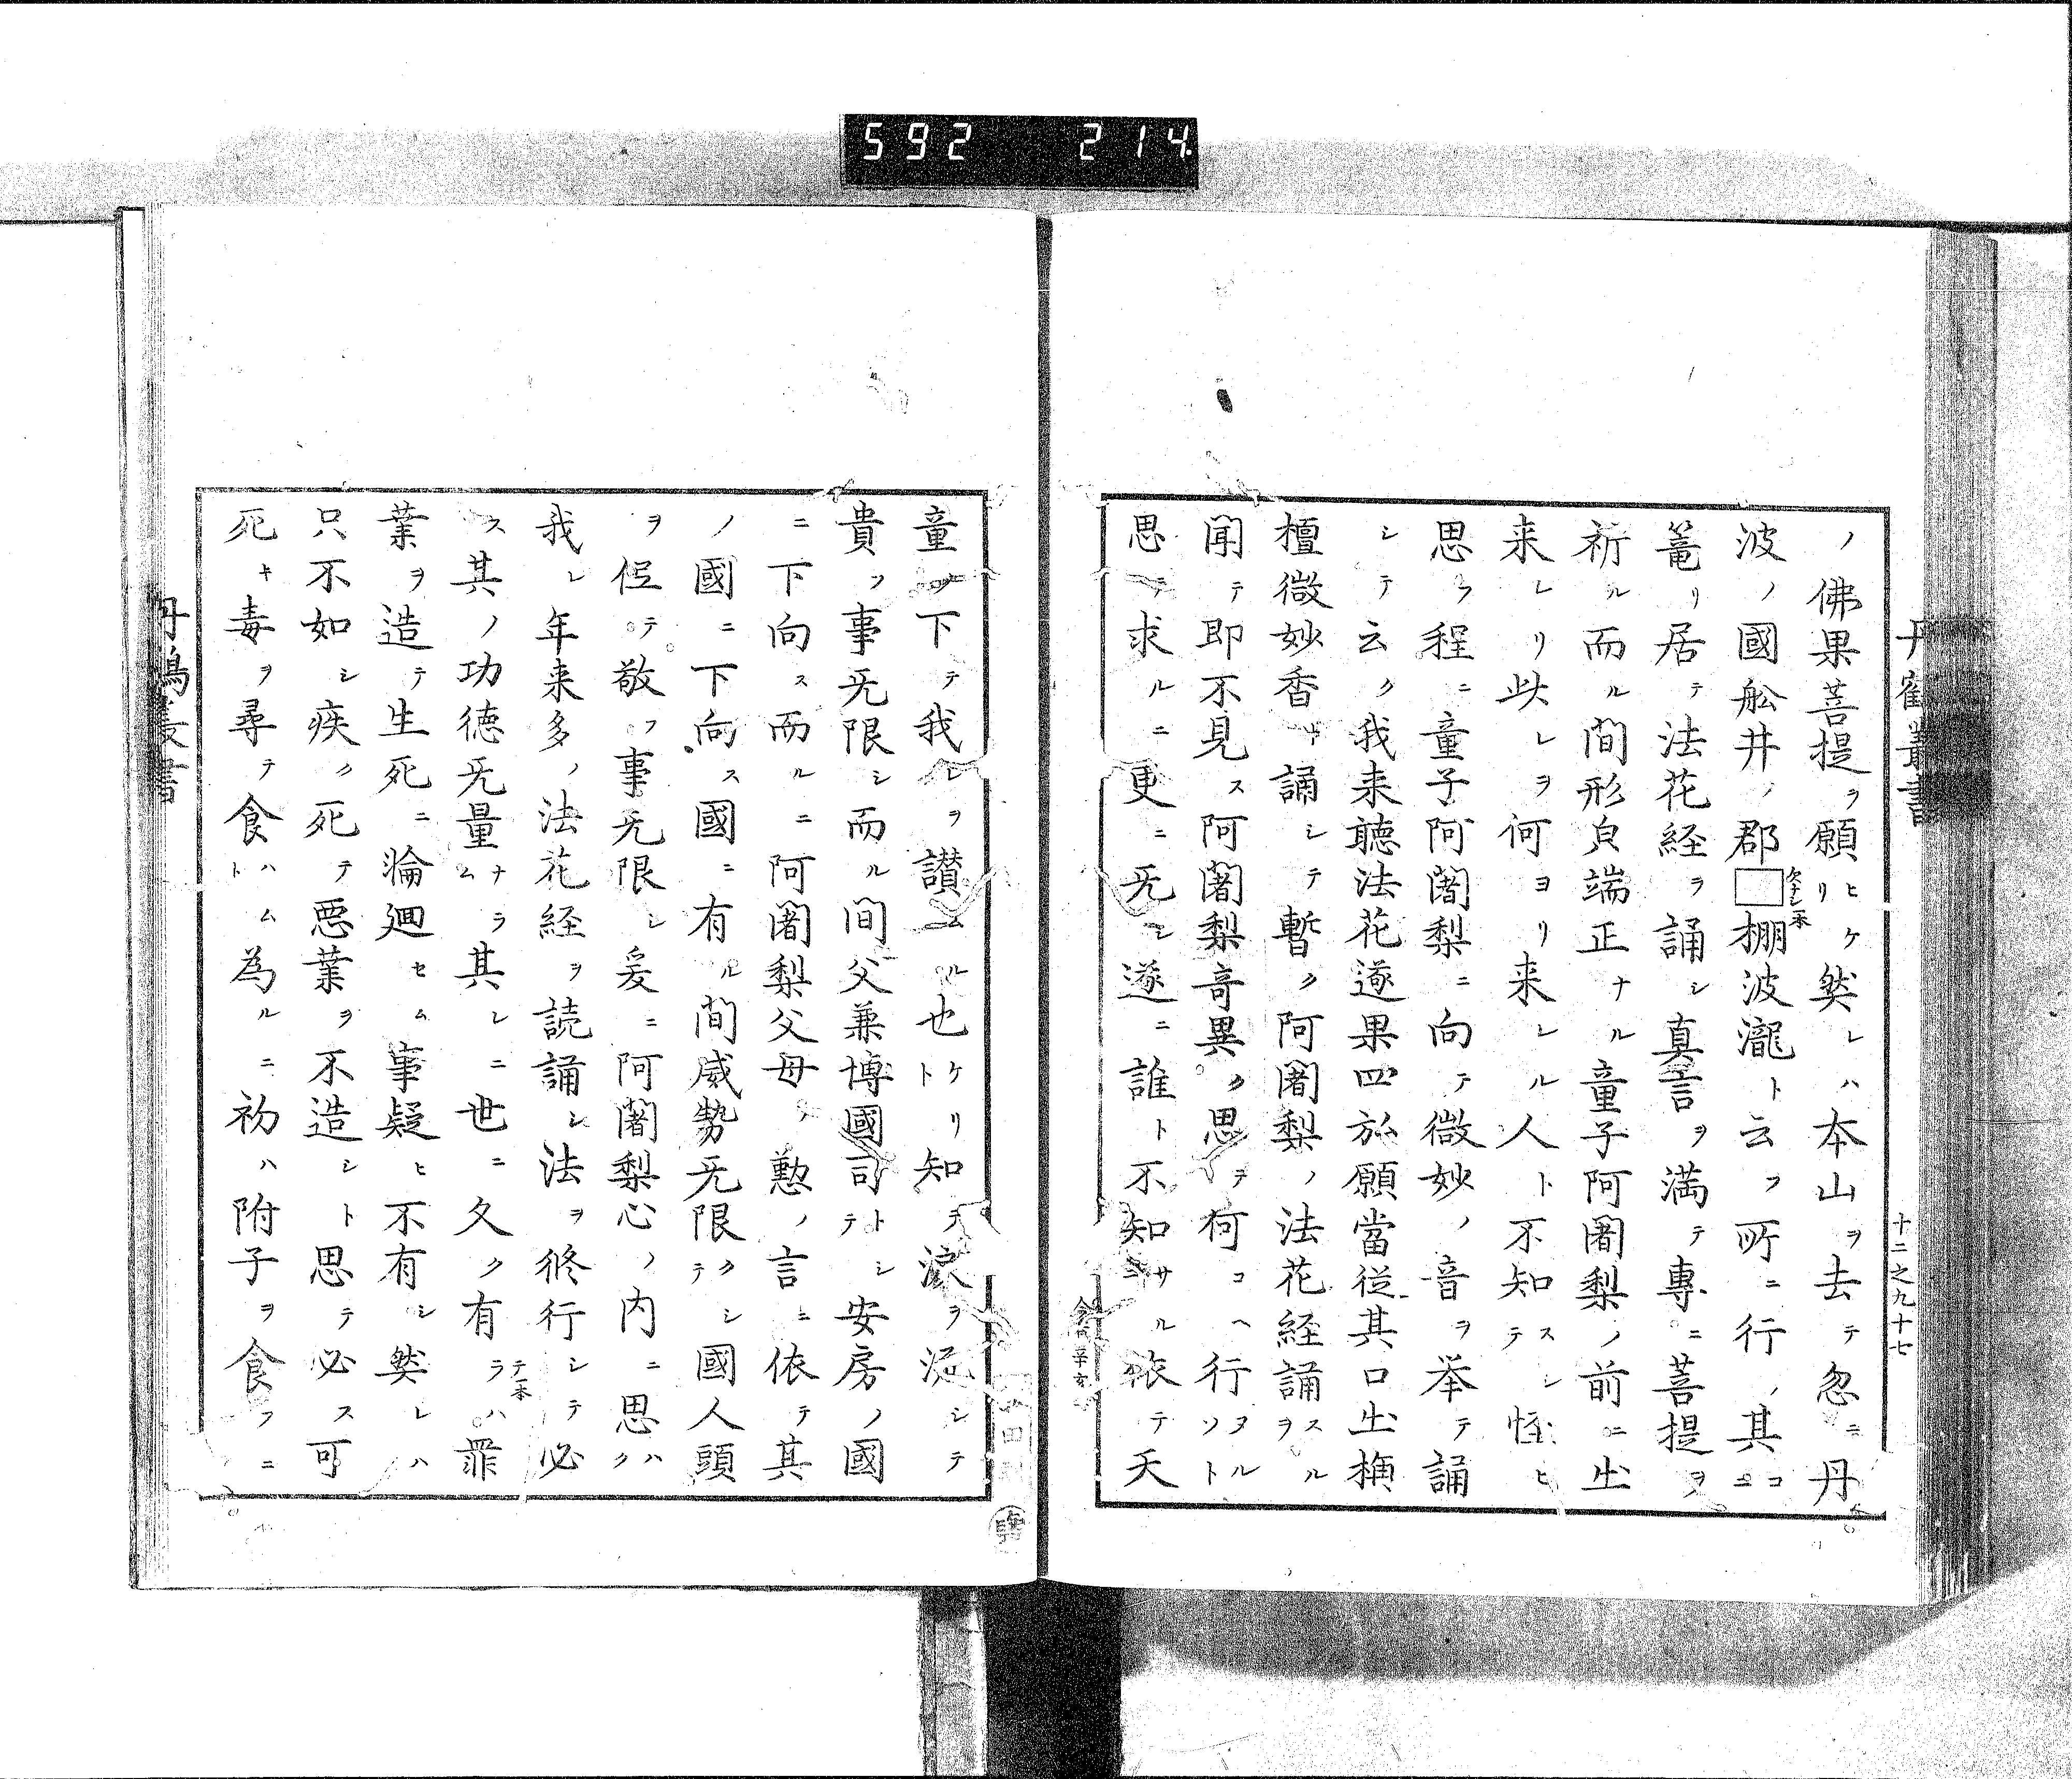 592 214
丹鶴叢書
十二之九十七
ノ佛果菩提ヲ願ヒケリ然レハ本山ヲ去テ忽ニ丹
波ノ國舩井ノ郡□欠ナシ一本棚波瀧ト云フ所ニ行ノ其コニ
篭リ居テ法花経ヲ誦シ真言ヲ満テ專ニ菩提ヲ
祈ル而ル間形皃端正ナル童子阿闍梨ノ前ニ出
来レリ此レヲ何ヨリ来レル人ト不知スシテ恠ヒ
思フ程ニ童子阿闍梨ニ向テ微妙ノ音ヲ挙テ誦
シテ云ク我来聽法花遂果四弘願當従其口出栴
檀微妙香ト誦シテ暫ク阿闍梨ノ法花経誦スルヲ
聞テ即不見ス阿闍梨奇異ク思テ何コヘ行ヌルソト
思テ求ルニ更ニ无シ遂ニ誰ト不知サルニ依テ天
童ノ下テ我レヲ讃ムル也ケリト知テ涙ヲ流シテ
貴フ事无限シ而ル間父兼博國司トシテ安房ノ國
ニ下向ス而ルニ阿闍梨父母ノ懃ノ言ニ依テ其
ノ國ニ下向ス國ニ有ル間威勢无限クシテ國人頭
ヲ低テ敬フ事无限シ爰ニ阿闍梨心ノ内ニ思ハク
我レ年来多ノ法花経ヲ読誦シ法ヲ修行シテ必
ス其ノ功徳无量ナラム其レニ世ニ久ク有ラテ一本ハ罪
業ヲ造テ生死ニ淪廻セム事疑ヒ不有シ然レハ
只不如シ疾ク死テ悪業ヲ不造シト思テ必ス可
死キ毒ヲ尋テ食ハムト為ルニ初ハ附子ヲ食フニ
丹鶴叢書